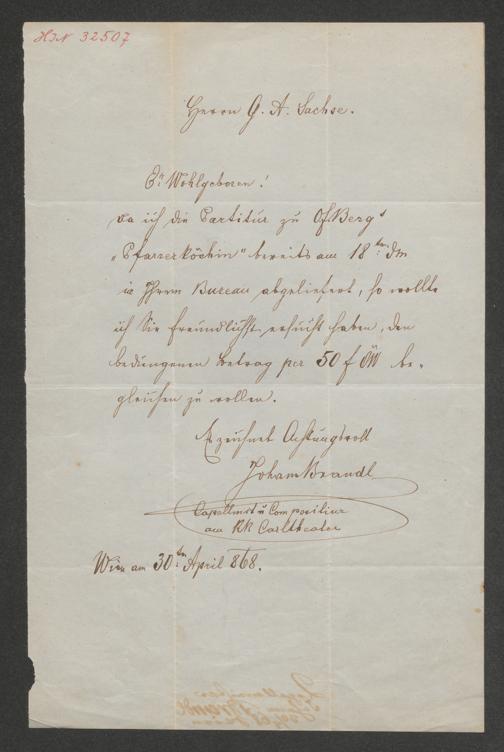 HIN 32507
Herrn G. A. Sachse.
Er. Wohlgeboren!
Da ich die Partitur zu O. F. Berg's
"Pfarrerköchin" bereits am 18ten: dM
in Ihrem Bureau abgeliefert, so wollte
ich Sie freundlichst ersucht haben, den
bedungenen Betrag per 50 f ÖW be-
gleichen zu wollen.
Es zeichnet Achtungsvoll
Johann Brandl
Capellmst u Compositeur
am KK Carltheater
Wien am 30ten: April 868.